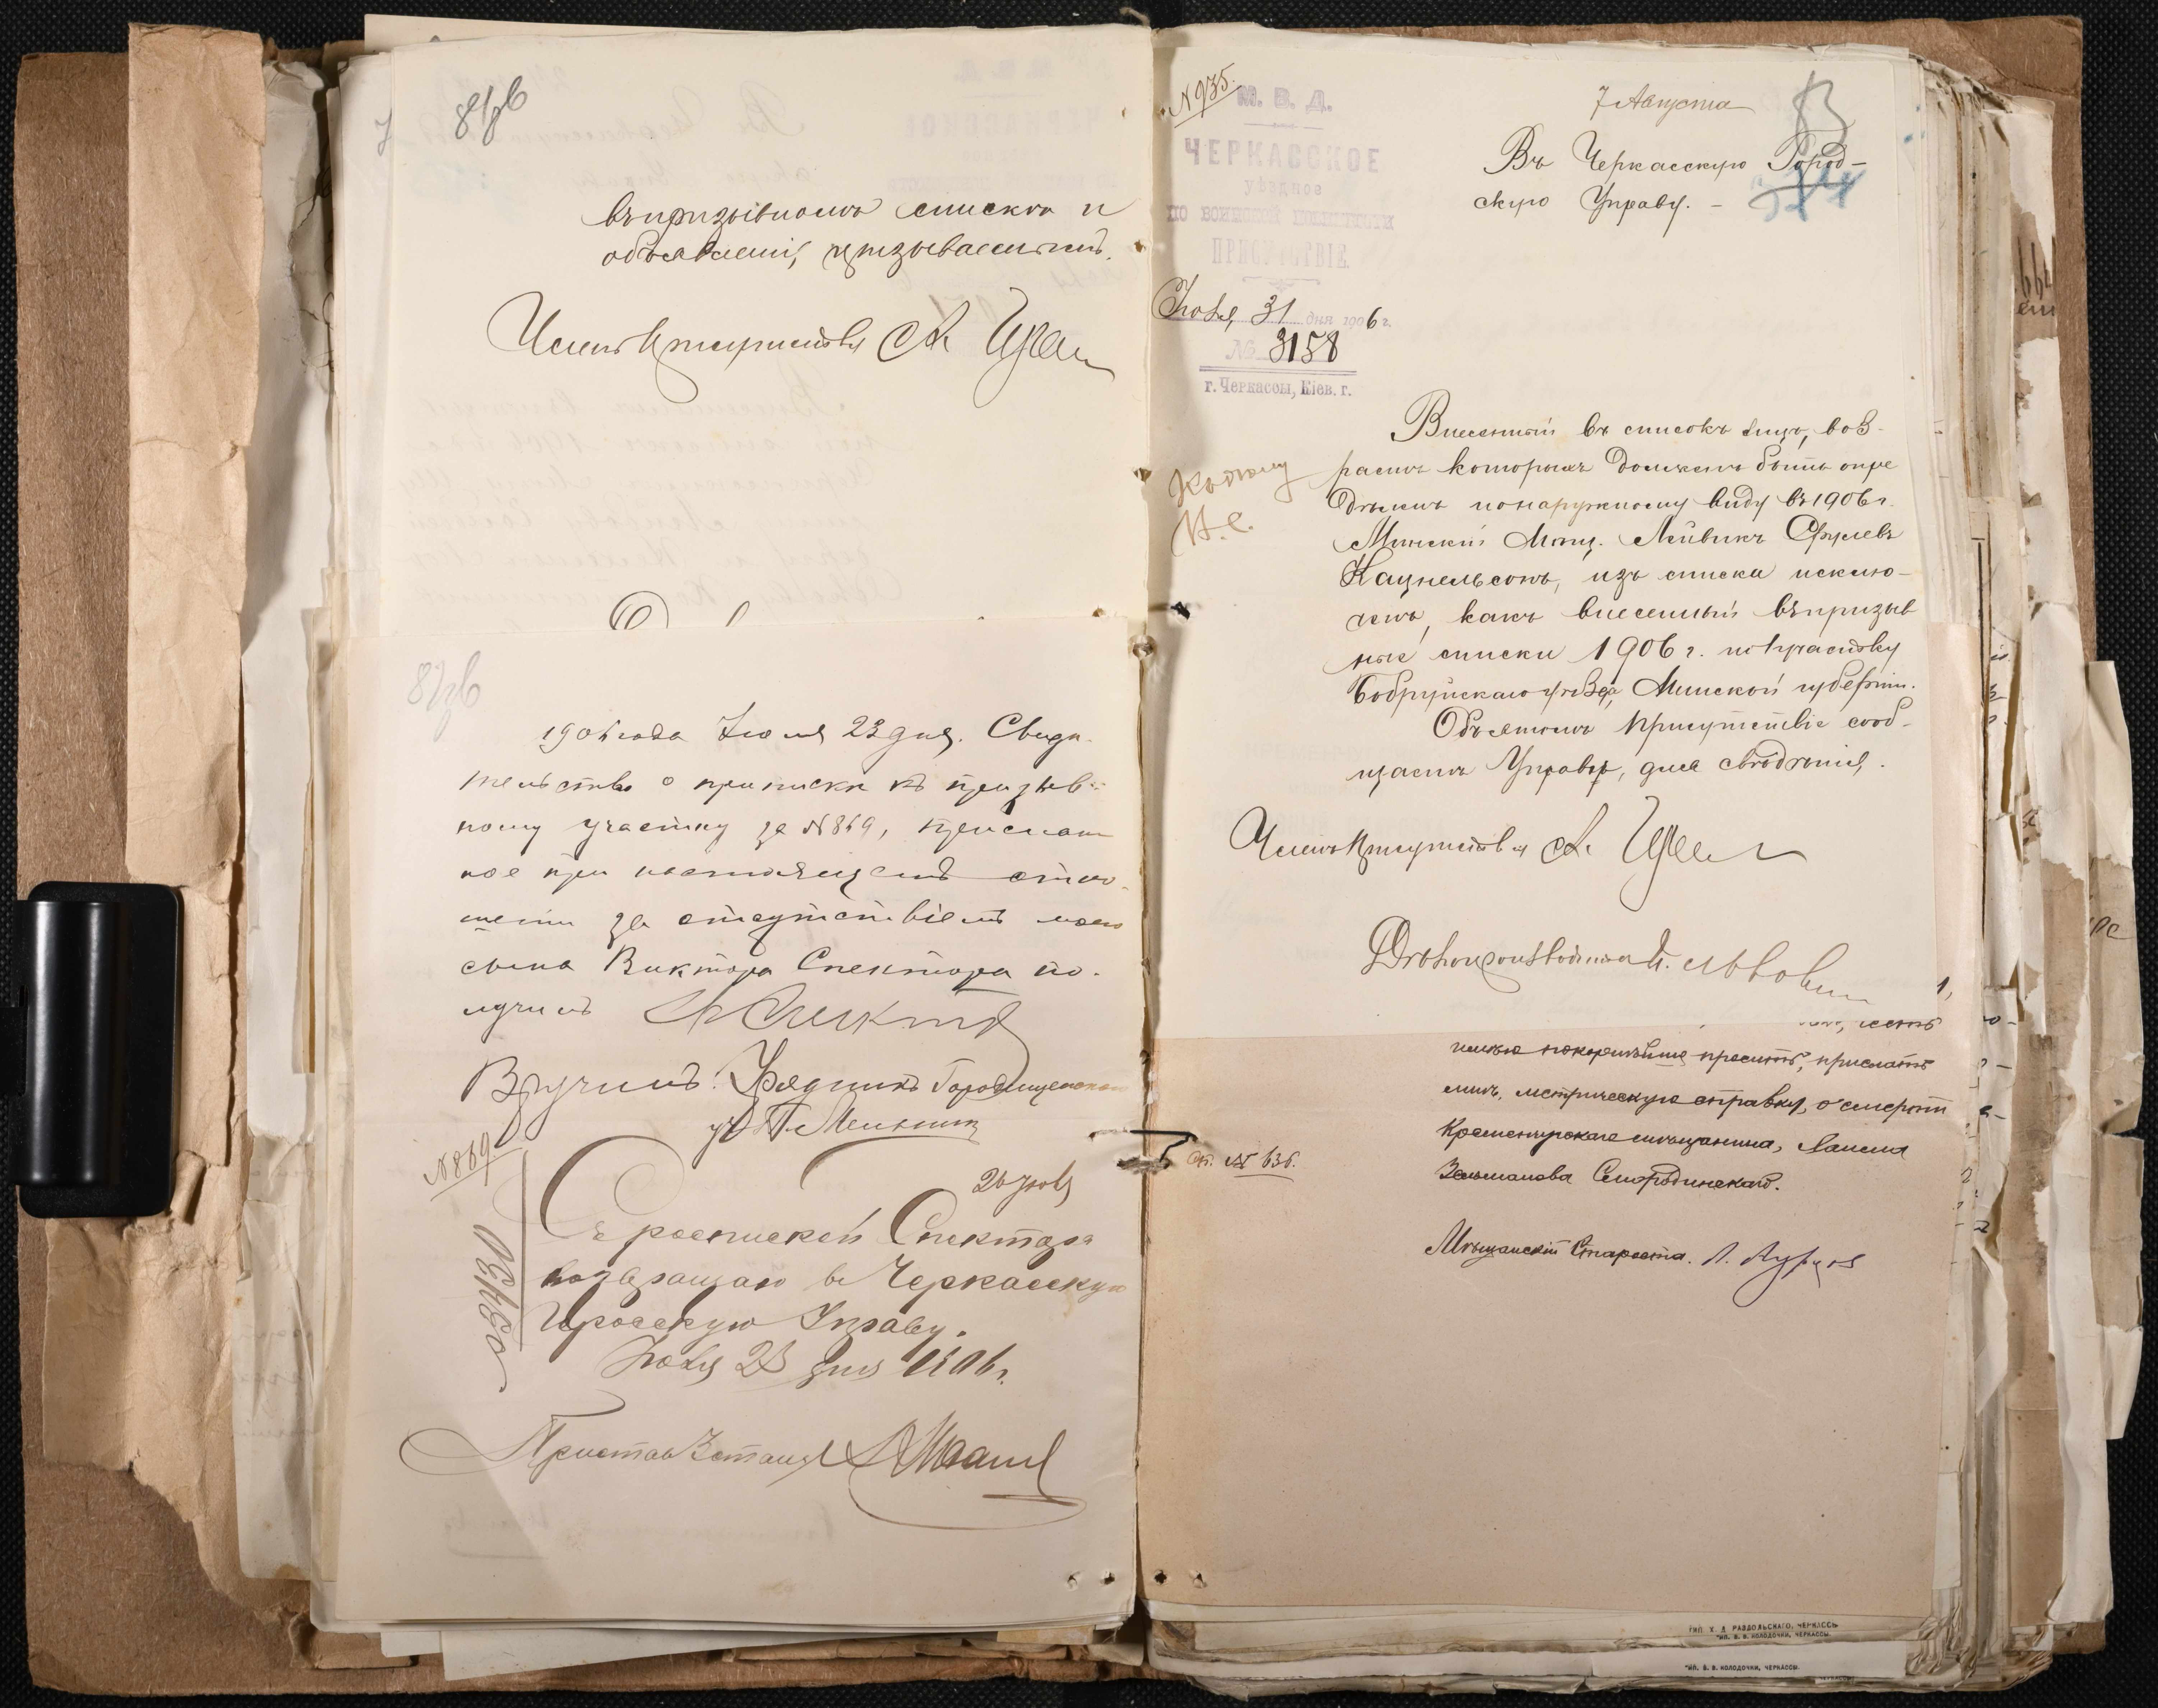 въ призывномъ списке и
объявленія призываемымъ.
Членъ Присутствія А.
1906 года Іюля 23 дня. Свидѣ-
тельство о припискѣ къ призыв-
ному участку за № 869, прислан-
ное при настоящемъ отно-
шеніи за отсутствіемъ моего
сына Виктора Спектора по-
лучилъ
Вручилъ: Урядникъ Городищенскаго
№ 869
26 Іюля
Съ роспиской Спектора
возвращаю въ Черкасскую
Городскую Управу.
Іюля 23 дня 1906 г.
Приставъ 3 стана
№ 935.
М. В. Д.
ЧЕРКАССКОЕ
уѣздное
ПО ВОИНСКОЙ ПОВИННОСТИ
ПРИСУТСТВІЕ
Іюля 31 дня 1906 г.
№ 3158
г. Черкассы, Кіев. г.
7 Августа
83
Въ Черкасскую Город-
скую Управу. -
Внесенный въ списокъ лицъ, воз-
растъ которыхъ долженъ быть опре
дѣленъ по наружному виду въ 1906 г.
Минскій Мѣщ. Лейвикъ Срулевъ
Кацнельсонъ, изъ списка исклю-
ченъ, какъ внесенный въ призыв
ные списки 1906 г. по 1 участку
Бобруйскаго уѣзда, Минской губерніи.
Объ этомъ Присутствіе сооб-
щаетъ Управѣ, для свѣдѣнія.
Членъ Присутствія А.
Дѣлопроизводитель
, честь
имѣю покорнѣйше просить, прислать
мнѣ, метрическую справку, о смерти
Кременчугскаго мѣщанина,
Зельманова Смородинскаго.
Ст. № 636.
Мѣщанскій Староста.
ТИП. Х. Д. РАДДОЛЬСКАГО, ЧЕРКАССЫ
ТИП. В. В. КОЛОДОЧКИ, ЧЕРКАССЫ.
ТИП. В. В. КОЛОДОЧКИ, ЧЕРКАССЫ.